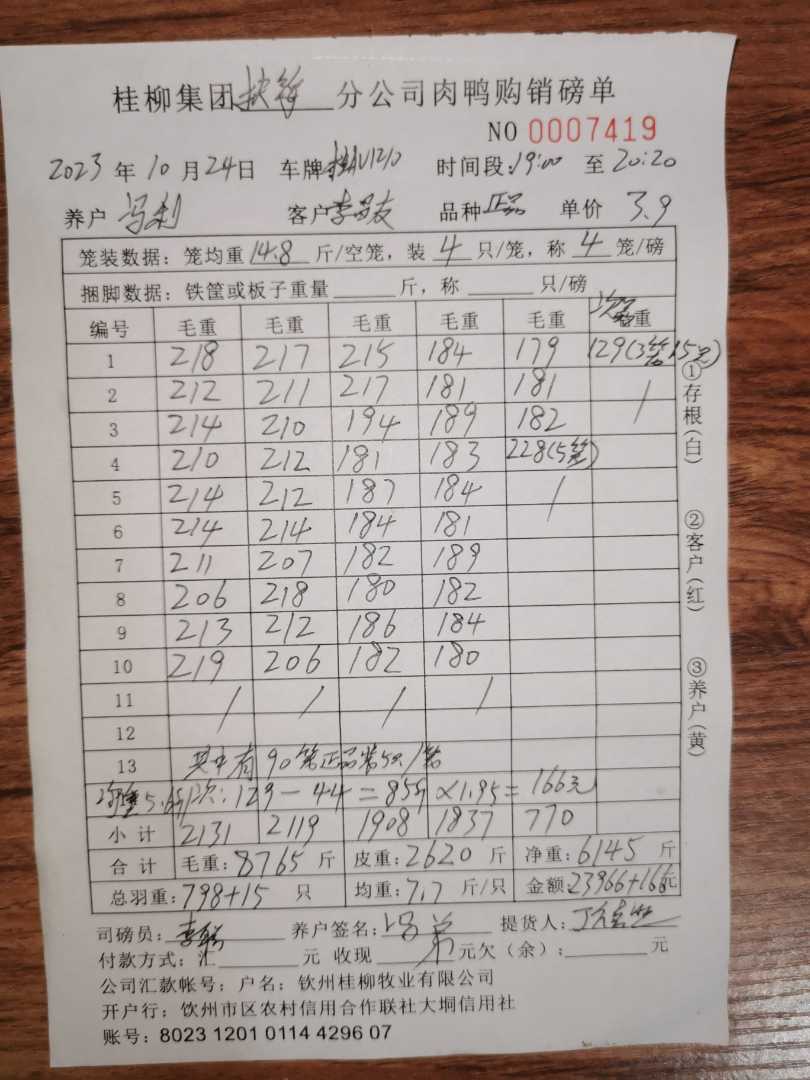 桂柳集团 分公司肉鸭购销磅单
NO 0007419
2023 年 10 月 24 日 车牌 时间段:19:00 至 20:20
养户 冯利 客户 李昌友 品种 正品 单价 3.9
笼装数据: 笼均重 14.8 斤/空笼, 装 4 只/笼, 称 4 笼/磅
捆脚数据: 铁筐或板子重量 斤, 称 只/磅
编号 毛重 毛重 毛重 毛重 毛重 重
1 218 217 215 184 179 129(3笼15只)
2 212 211 217 181 181 /
3 214 210 194 189 182
4 210 212 181 183 228(5笼)
5 214 212 187 184 /
6 214 214 184 181
7 211 207 182 189
8 206 218 180 182
9 213 212 186 184
10 219 206 182 180
11 / / / /
12
13 其中有90笼正品装5只/笼
次: 129-44=85斤×1.95=166元
小计 2131 2119 1908 1837 770
合计 毛重: 8765 斤 皮重: 2620 斤 净重: 6145 斤
总羽重: 798+15 只 均重: 7.7 斤/只 金额: 23966+166元
司磅员: 养户签名: 提货人:
付款方式: 汇 元 收现 元欠(余): 元
公司汇款帐号: 户名: 钦州桂柳牧业有限公司
开户行: 钦州市区农村信用合作联社大垌信用社
账号: 8023 1201 0114 4296 07
①存根(白)
②客户(红)
③养户(黄)